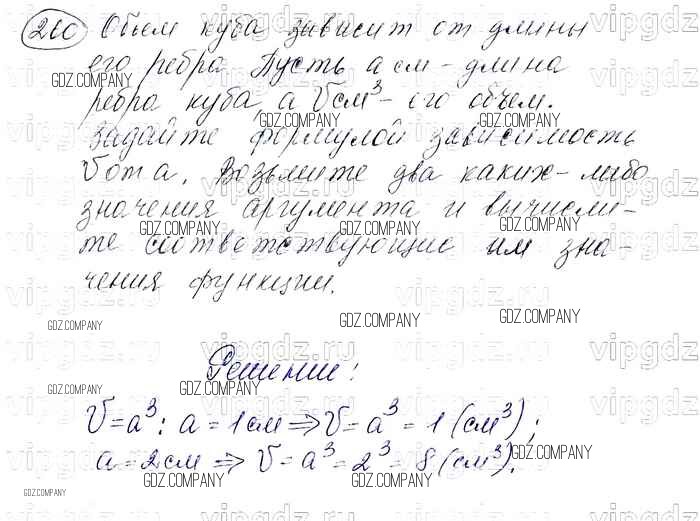 260 Объем куба зависит от длины
его ребра. Пусть a см – длина
ребра куба, а V см³ – его объем.
Задайте формулой зависимость
V от a. Возьмите два каких-либо
значения аргумента и вычисли-
те соответствующие им зна-
чения функции.
Решение:
V = a³: a = 1 см ⇒ V = a³ = 1 (см³);
a = 2 см ⇒ V = a³ = 2³ = 8 (см³).